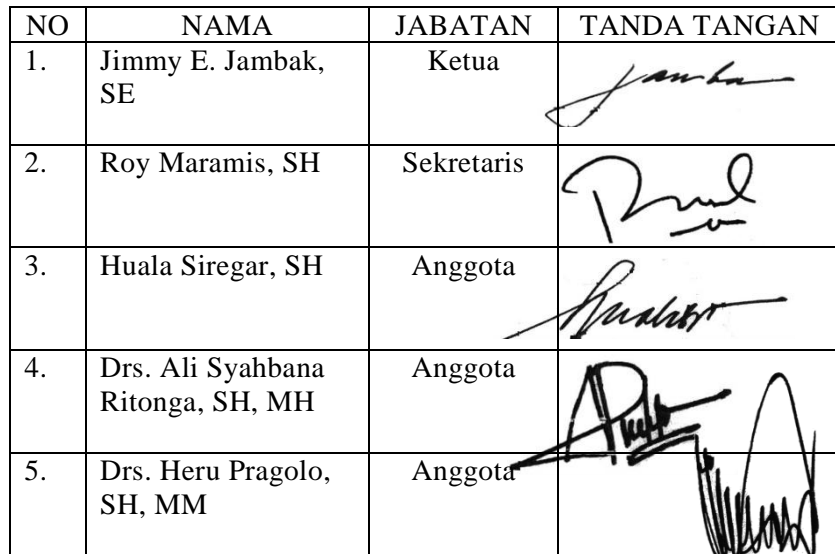 NO NAMA JABATAN TANDA TANGAN
1. Jimmy E. Jambak, Ketua
SE
2. Roy Maramis, SH Sekretaris
3. Huala Siregar, SH Anggota
4. Drs. Ali Syahbana Anggota
Ritonga, SH, MH
5. Drs. Heru Pragolo, Anggota
SH, MM